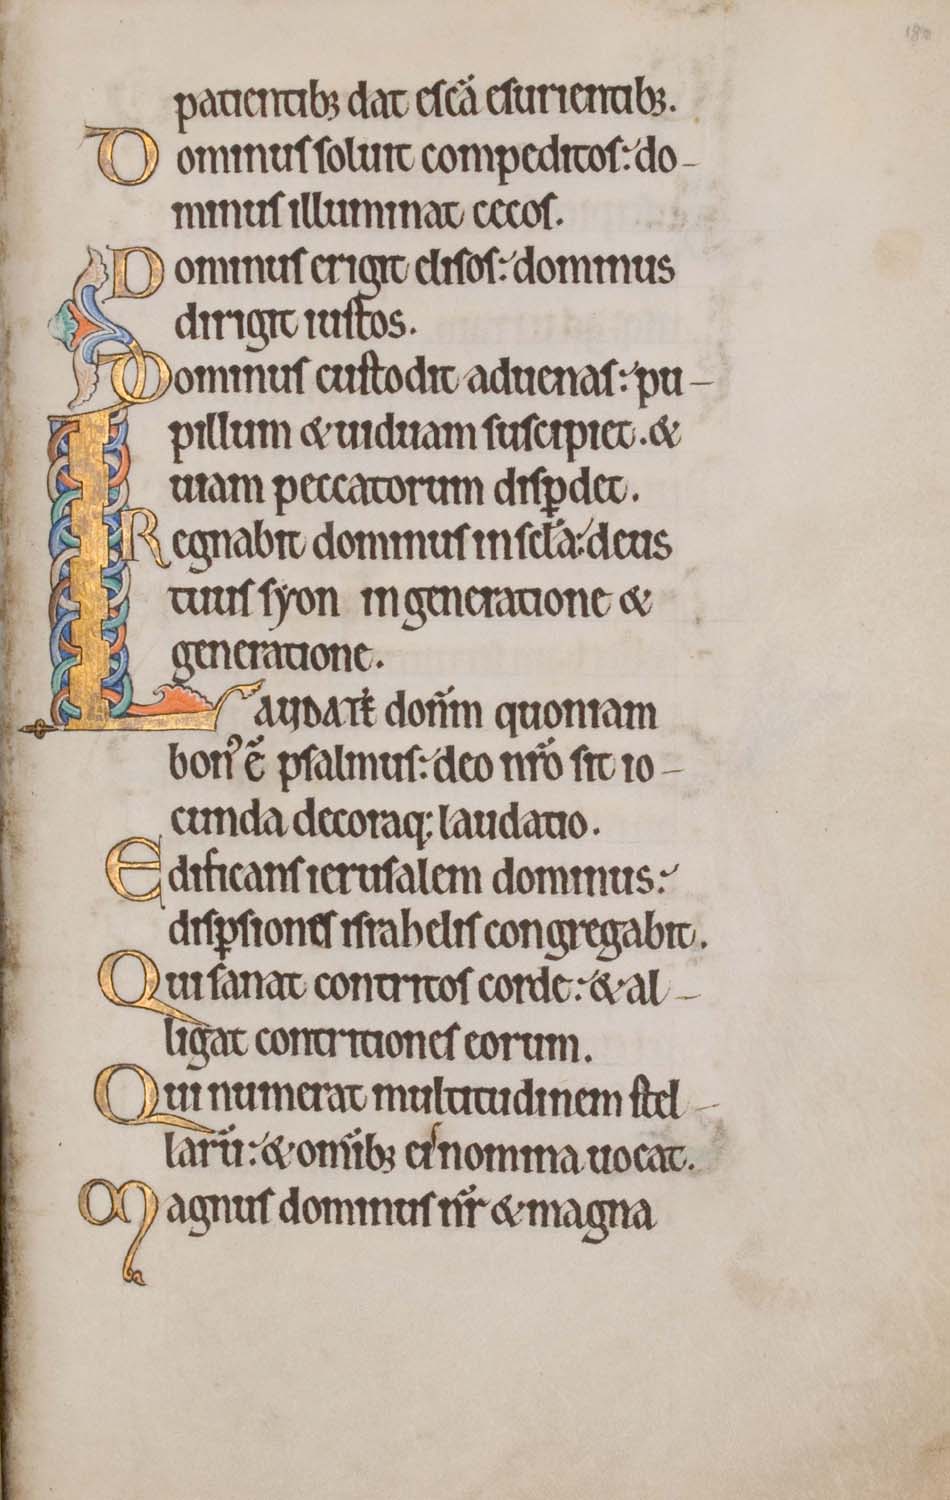 180
patientibꝫ dat escā esurientibꝫ.
Dominus soluit compeditos: do-
minus illuminat cecos.
Dominus erigit elisos: dominus
dirigit iustos.
Dominus custodit aduenas: pu-
pillum & uiduam suscipiet. &
uiam peccatorum disꝑdet.
Regnabit dominus in scl̄a: deus
tuus syon in generatione &
generatione.
LAUDATE dom̄m quoniam
bonꝰ ē psalmus: deo nr̄o sit io-
cunda decoraq; laudatio.
Edificans ierusalem dominus:
disꝑsiones israhelis congregabit.
Qui sanat contritos corde: & al-
ligat contritiones eorum.
Qui numerat multitudinem stel-
larū: & omībꝫ eis nomina uocat.
Magnus dominus nr̄ & magna